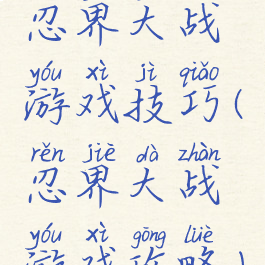 忍界大战
yóu xì jì qiǎo
游戏技巧(
rěn jiè dà zhàn
忍界大战
yóu xì gōng lüè
游戏攻略)